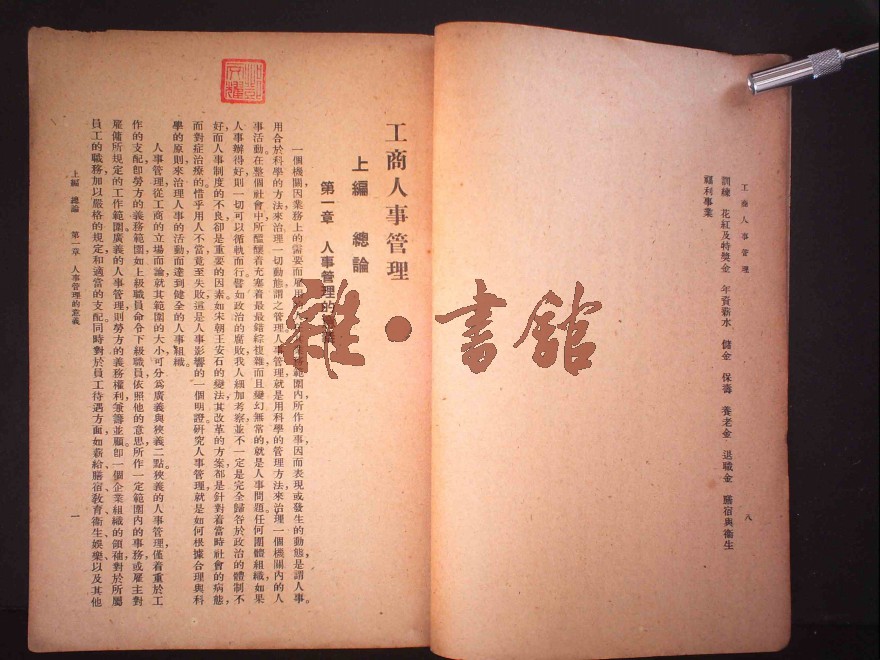 工商人事管理
八
訓練　花紅及特獎金　年資薪水　儲金　保壽　養老金　退職金　膳宿與衞生
福利事業
工商人事管理
上編　總論
第一章　人事管理的
一個機關因業務上的需要而雇用的範圍內所作的事因而表現或發生的動態，是謂人事。
用合於科學的方法來治理一切動態謂之管理人事管理就是用科學的管理方法來治理一個機關內的人
事活動。在整個社會中所醞釀着充塞着最最錯綜複雜而且變幻無常的就是人事問題。任何團體組織如果
人事辦得好則一切可以循軌而行。譬如政治的腐敗我人細加考察並不一定是完全歸咎於政治的體制不
好，而人事制度的不良，卻是重要的因素。如宋朝王安石的變法，其改革的方案都是針對着當時社會的病態，
而對症治療的。惜乎用人不當，竟至失敗，這是人事影響的一個明證。研究人事管理，就是如何根據合理與科
學的原則來治理人事的活動而達到健全的人事組織。
人事管理從工商的立場而論，就其範圍的大小可分爲廣義與狹義二點。狹義的人事管理，僅着重於工
作的支配，卽勞方的義務範圍，如上級職員命令下級職員依照他的意思所作一定範圍內的事務，或雇主對
雇傭所規定的工作範圍。廣義的人事管理則勞方的義務權利兼籌並顧，卽一個企業組織的領袖，對於所屬
員工的職務，加以嚴格的規定和適當的支配。同時對於員工待遇方面，如薪給、膳宿、敎育、衞生、娛樂以及其他
上編　總論　第一章　人事管理的意義
一
雅·書館